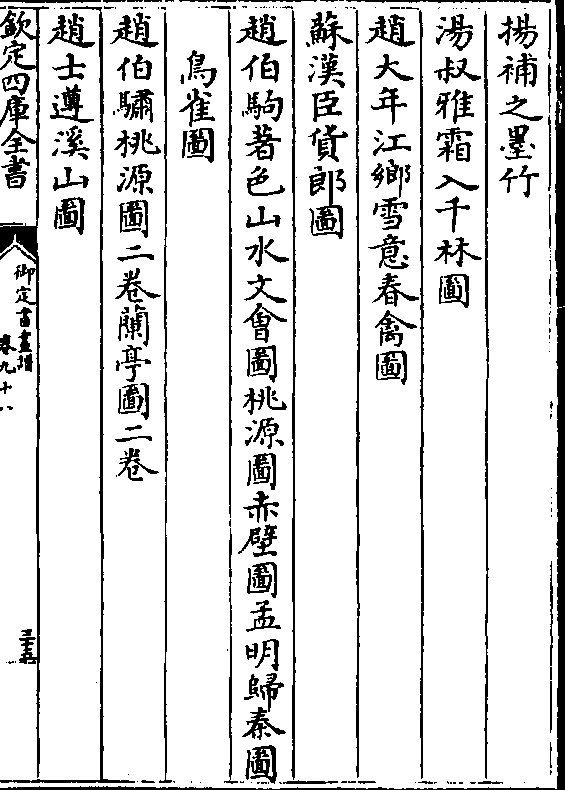 揚補之墨竹
湯叔雅霜入千林圖
趙大年江鄉雪意春禽圖
蘇漢臣貨郎圖
趙伯駒著色山水文會圖桃源圖赤壁圖孟明歸秦圖
鳥雀圖
趙伯驌桃源圖二卷蘭亭圖二卷
趙士遵溪山圖
欽定四庫全書
御定書畫譜
卷九十八
三十五